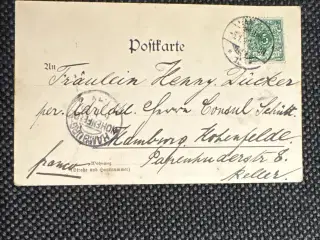 Postkarte
An
Fräulein Henny Dücker
per. Adr. Herrn Consul Schütt
Hamburg, Hohenfelde,
Papenhuderstr. 8.
franco
Wohnung
(Straße und Hausnummer)
Keller.
HAMBURG